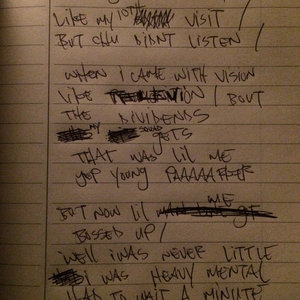 LIKE MY 10TH VISIT /
BUT CHU DIDNT LISTEN /
WHEN I CAME WITH VISION
LIKE ION / BOUT
THE DIVIDENDS
MY SQUAD GETS
THAT WAS LIL ME
YEP YOUNG
BUT NOW LIL ME
BOSSED UP /
WELL I WAS NEVER LITTLE
I WAS HEAVY METAL
HAD TO WAIT A MINUTE